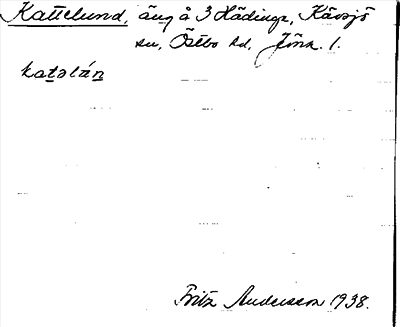 Kattelund, äng å 3 Hädinge, Kävsjö
sn, Östbo hd, Jönk. l.
katəlán
Fritz Andersson 1938.